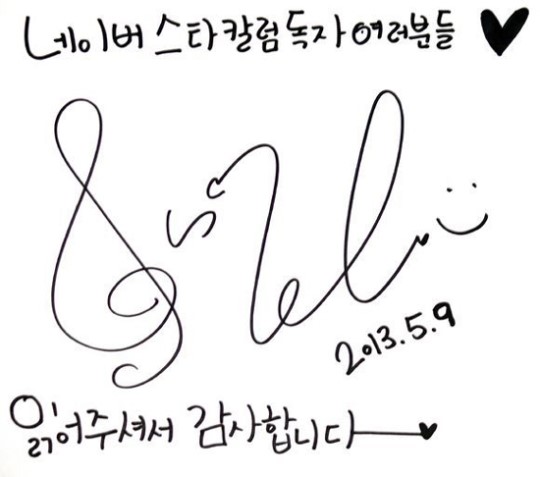 네이버 스타칼럼 독자 여러분들 ♥
2013.5.9
읽어주셔서 감사합니다